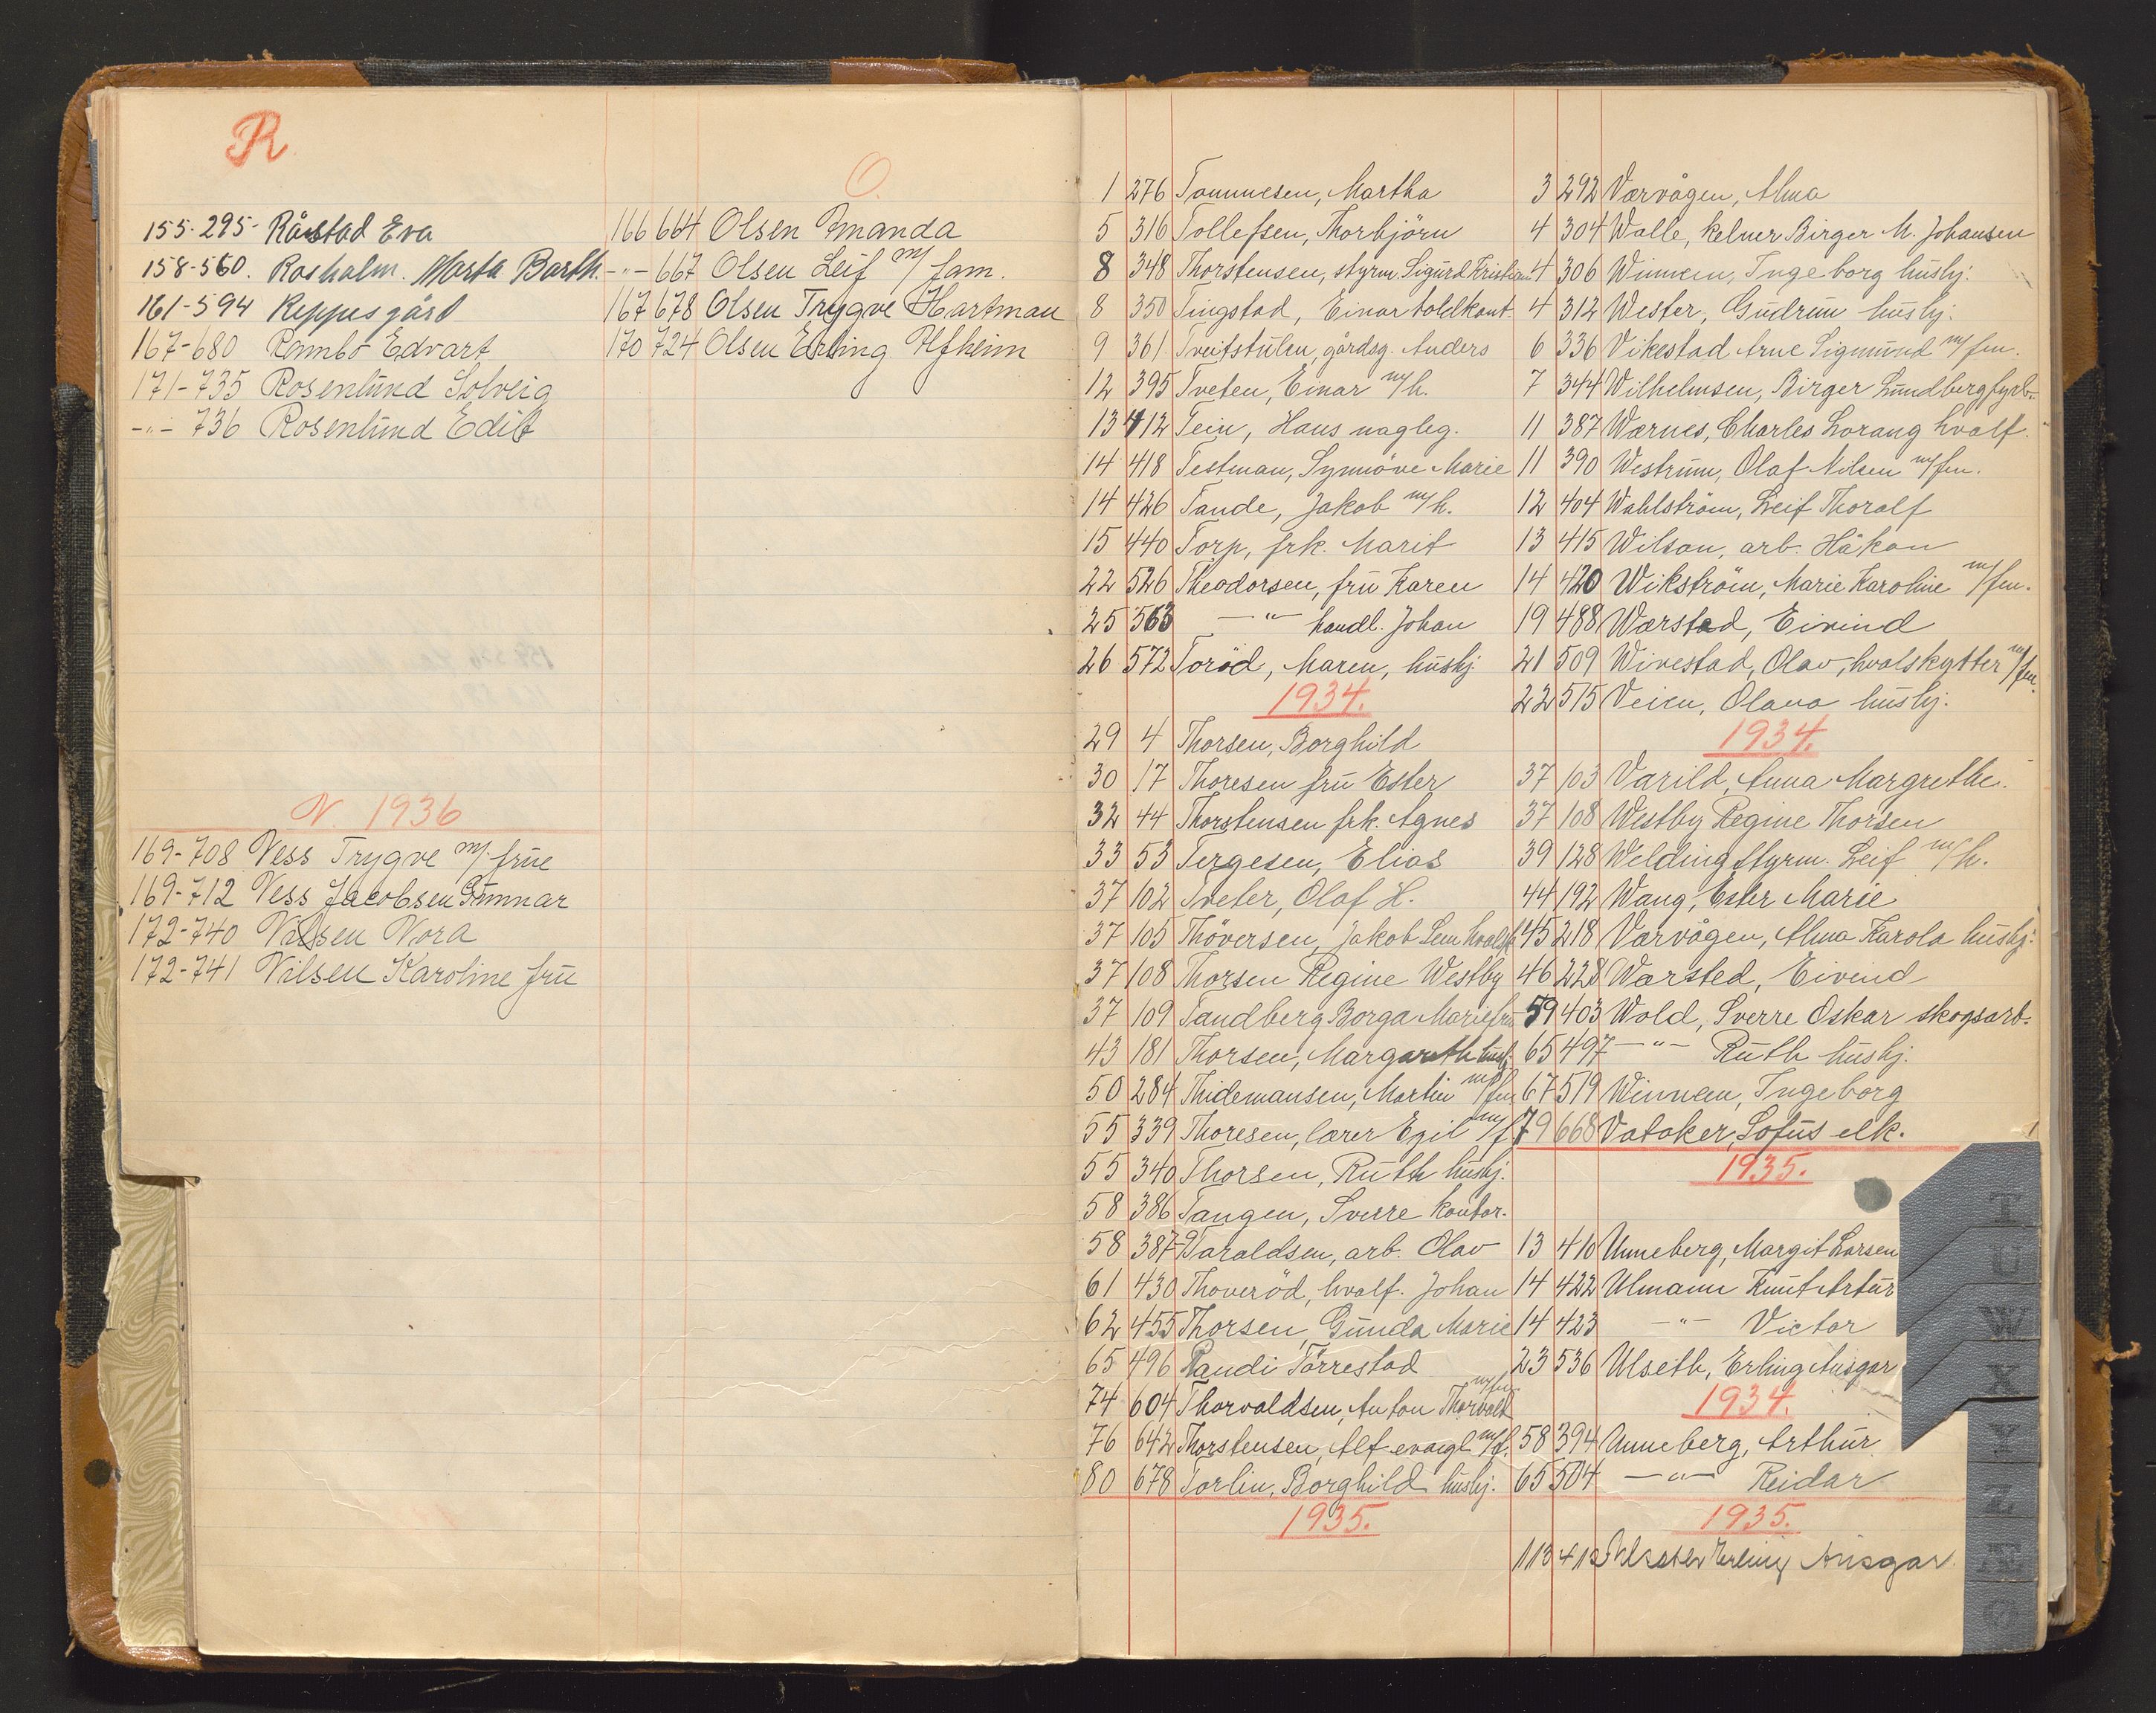 R
155-295- Råstad Eva
158-560. Rosholm. Marta Barth.
161-594 Reppesgård
167-680 Rambö Edvart
171-735 Rosenlund Solveig
-"- 736 Rosenlund Edit
N. 1936
169-708 Ness Trygve m/ frue
169-712 Ness Jacobsen Gunnar
172-740 Nilsen Nora
172-741 Nilsen Karoline fru
O.
166 664 Olsen Amanda
-"- 667 Olsen Leif m/ fam.
167 678 Olsen Trygve Hartman
170 724 Olsen Erling Alfheim
1 276 Tommesen, Martha
5 316 Tollefsen, Thorbjörn
8 348 Thorstensen, styrm. Sigurd Kristian
8 350 Tingstad, Einar toldkont.
9 361 Tveitstulen, gårdsg. Anders
12 395 Tveten, Einar m/h.
13 412 Tein, Hans nagleg.
14 418 Testman, Synnöve Marie
14 426 Tande, Jakob m/h.
15 440 Torp, frk. Marit
22 526 Theodorsen, fru Karen
25 563 -"- handl. Johan
26 572 Toröd, Maren, hushj.
1934.
29 4 Thorsen, Borghild
30 17 Thoresen fru Ester
32 44 Thorstensen frk. Agnes
33 53 Tergesen, Elias
37 102 Tveter, Olaf H.
37 105 Thöversen, Jakob Lem hvalf.
37 108 Thorsen Regine Westby
37 109 Tandberg Borga Marie fru
43 181 Thorsen, Margareth hushj.
50 284 Thidemansen, Martin m/fm
55 339 Thoresen, lærer Egil m/f
55 340 Thorsen, Ruth hushj.
58 386 Tangen, Sverre kontor.
58 387 Taraldsen, arb. Olav
61 430 Thoveröd, hvalf. Johan
62 455 Thorsen, Gunda Marie
65 496 Randi Törrestad
74 604 Thorvaldsen, Anton Thorvald m/fm
76 642 Thorstensen, Alf evangl. m/f.
80 678 Torlin, Borghild hushj.
1935.
3 292 Varvågen, Alma
4 304 Walle, kelner Birger M. Johansen
4 306 Winnem, Ingeborg hushj.
4 312 Wester, Gudrun hushj.
6 336 Vikestad Arne Sigmund m/fm.
7 344 Wilhelmsen, Birger Lundberg fyrb.
11 387 Wærnes, Charles Lorang hvalf.
11 390 Westrum, Olaf Nilsen m/fm.
12 404 Wahlström, Leif Thoralf
13 415 Wilson, arb. Håkon
14 420 Wikström, Marie Karoline m/fm.
19 488 Warstad, Eivind
21 509 Wivestad, Olav, hvalskytter m/fm.
22 515 Veien, Olava hushj.
1934.
37 103 Varild, Anna Margrethe.
37 108 Westby Regine Thorsen
39 128 Welding styrm. Leif m/h.
44 192 Wang, Ester Marie
45 218 Varvågen, Alma Karola hushj.
46 228 Warsted, Eivind
59 403 Wold, Sverre Oskar skogsarb.
65 497 -"- Ruth hushj.
67 519 Winnem, Ingeborg
79 668 Vataker, Lofus elk.
1935.
13 410 Unneberg, Margit Larsen
14 422 Ulmann Knut Artur
14 423 -"- Victor
23 536 Ulseth, Erling Ansgar
1934.
58 394 Unneberg, Arthur
65 504 -"- Reidar
1935.
113 412 Ulseth Erling Ansgar
T
U
W
X
Y
Z
Æ
Ø